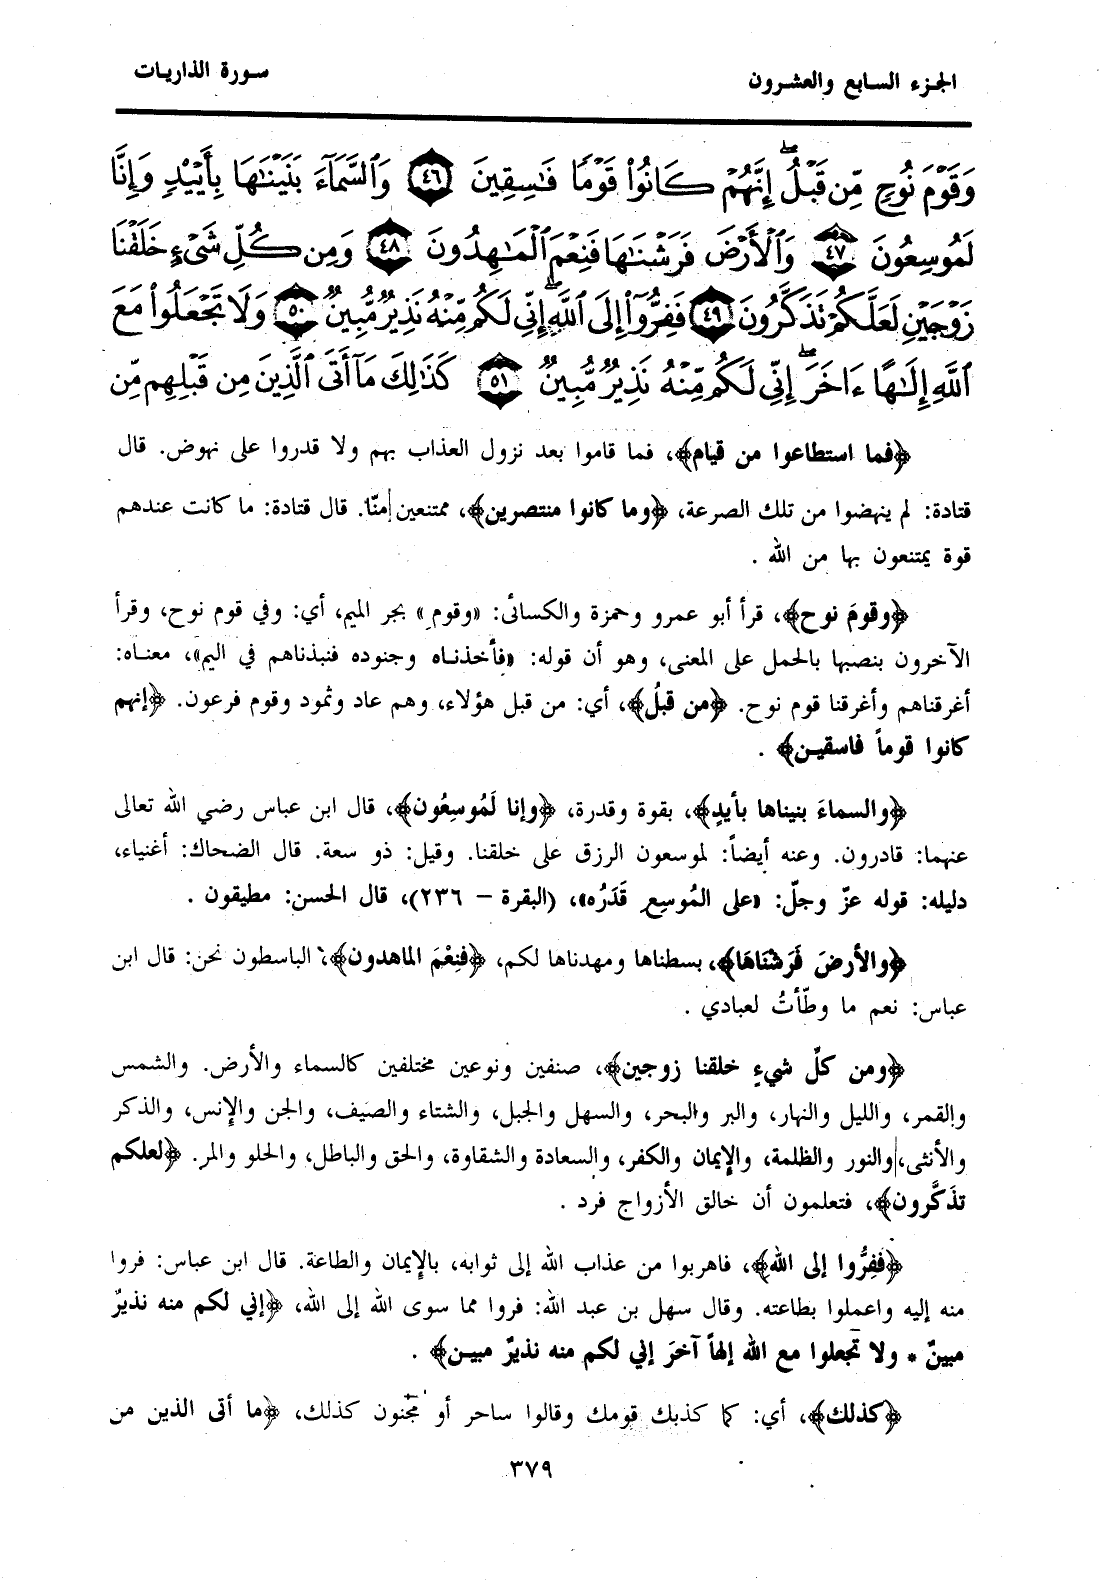 الجزء السابع والعشرون
سورة الذاريات
وَقَوْمَ نُوحٍ مِّن قَبْلُ ۖ إِنَّهُمْ كَانُوا۟ قَوْمًا فَـٰسِقِينَ ٤٦ وَٱلسَّمَآءَ بَنَيْنَـٰهَا بِأَيْي۟دٍ وَإِنَّا
لَمُوسِعُونَ ٤٧ وَٱلْأَرْضَ فَرَشْنَـٰهَا فَنِعْمَ ٱلْمَـٰهِدُونَ ٤٨ وَمِن كُلِّ شَىْءٍ خَلَقْنَا
زَوْجَيْنِ لَعَلَّكُمْ تَذَكَّرُونَ ٤٩ فَفِرُّوٓا۟ إِلَى ٱللَّهِ ۖ إِنِّى لَكُم مِّنْهُ نَذِيرٌ مُّبِينٌ ٥٠ وَلَا تَجْعَلُوا۟ مَعَ
ٱللَّهِ إِلَـٰهًا ءَاخَرَ ۖ إِنِّى لَكُم مِّنْهُ نَذِيرٌ مُّبِينٌ ٥١ كَذَٰلِكَ مَآ أَتَى ٱلَّذِينَ مِن قَبْلِهِم مِّن
﴿فما استطاعوا من قيام﴾، فما قاموا بعد نزول العذاب بهم ولا قدروا على نهوض. قال
قتادة: لم ينهضوا من تلك الصرعة، ﴿وما كانوا منتصرين﴾، ممتنعين منّا. قال قتادة: ما كانت عندهم
قوة يمتنعون بها من الله .
﴿وقومَ نوح﴾، قرأ أبو عمرو وحمزة والكسائى: «وقومِ» بجر الميم، أي: وفي قوم نوح، وقرأ
الآخرون بنصبها بالحمل على المعنى، وهو أن قوله: «فأخذناه وجنوده فنبذناهم في اليم»، معناه:
أغرقناهم وأغرقنا قوم نوح. ﴿من قبلُ﴾، أي: من قبل هؤلاء، وهم عاد وثمود وقوم فرعون. ﴿إنهم
كانوا قوماً فاسقين﴾ .
﴿والسماءَ بنيناها بأيدٍ﴾، بقوة وقدرة، ﴿وإنا لَمُوسِعُون﴾، قال ابن عباس رضي الله تعالى
عنهما: قادرون. وعنه أيضاً: لموسعون الرزق على خلقنا. وقيل: ذو سعة. قال الضحاك: أغنياء،
دليله: قوله عزّ وجلّ: «على المُوسِعِ قَدَرُه»، (البقرة – ٢٣٦)، قال الحسن: مطيقون .
﴿والأرضَ فَرَشْنَاهَا﴾، بسطناها ومهدناها لكم، ﴿فنِعْمَ الماهدون﴾، الباسطون نحن: قال ابن
عباس: نعم ما وطّأتُ لعبادي .
﴿ومن كلِّ شيءٍ خلقنا زوجين﴾، صنفين ونوعين مختلفين كالسماء والأرض. والشمس
والقمر، والليل والنهار، والبر والبحر، والسهل والجبل، والشتاء والصيف، والجن والإنس، والذكر
والأنثى، والنور والظلمة، والإيمان والكفر، والسعادة والشقاوة، والحق والباطل، والحلو والمر. ﴿لعلكم
تذَكَّرون﴾، فتعلمون أن خالق الأزواج فرد .
﴿ففِرُّوا إلى الله﴾، فاهربوا من عذاب الله إلى ثوابه، بالإيمان والطاعة. قال ابن عباس: فروا
منه إليه واعملوا بطاعته. وقال سهل بن عبد الله: فروا مما سوى الله إلى الله، ﴿إني لكم منه نذيرٌ
مبينٌ * ولا تجعلوا مع الله إلهاً آخرَ إني لكم منه نذيرٌ مبين﴾ .
﴿كذلك﴾، أي: كما كذبك قومك وقالوا ساحر أو مجنون كذلك، ﴿ما أتى الذين من
٣٧٩